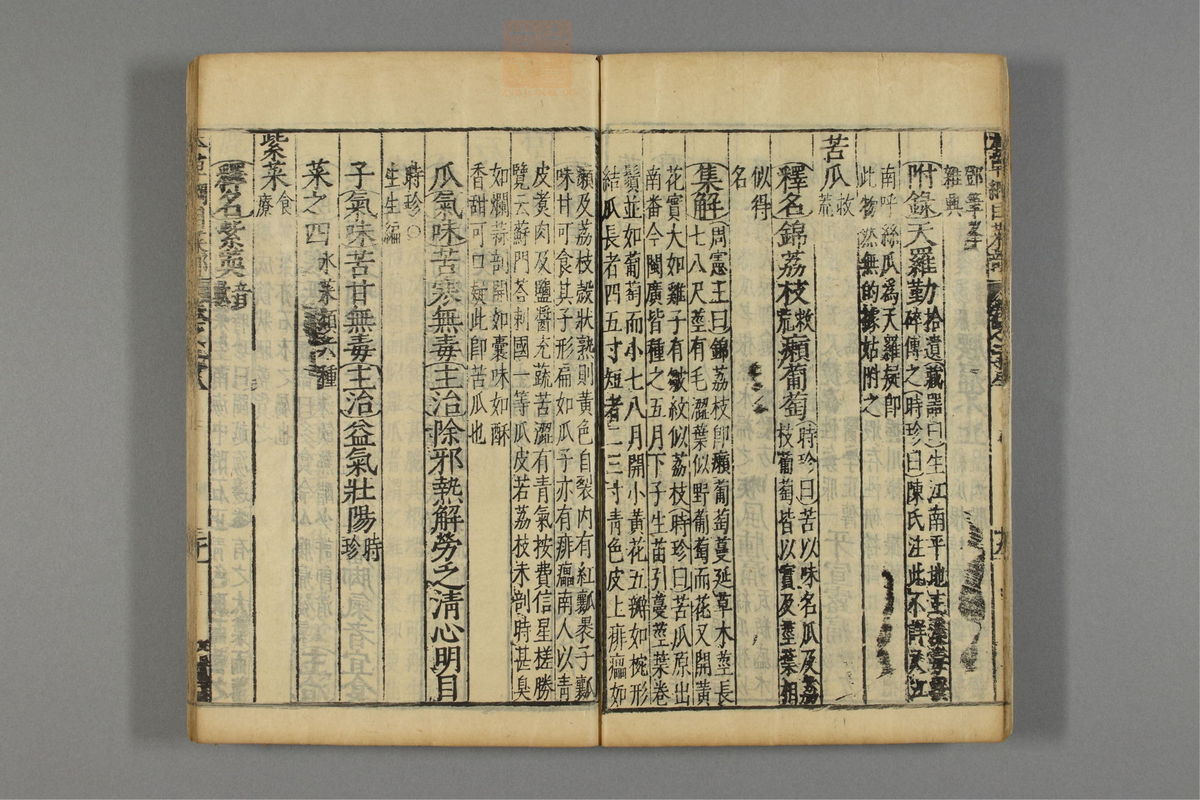 雜興
附錄天羅勒拾遺藏器曰生江南平地主
碎傳之時珍曰陳氏注此不詳又江
南呼絲瓜為天羅疑即
此物然無的據姑附之
苦瓜救荒
釋名錦荔枝救荒癩葡萄時珍曰苦以味名瓜及荔
枝葡萄皆以實及莖葉相
似得
名
集解周憲王曰錦荔枝即癩葡萄蔓延草木莖長
七八尺莖有毛澀葉似野葡萄而花又開黃
花實大如雞子有皺紋似荔枝時珍曰苦瓜原出
南番今閩廣皆種之五月下子生苗引蔓莖葉卷
鬚並如葡萄而小七八月開小黃花五瓣如椀形
結瓜長者四五寸短者二三寸青色皮上痱㿔如
癩及荔枝殼狀熟則黃色自裂內有紅瓤裹子瓤
味甘可食其子形扁如瓜子亦有痱㿔南人以青
皮煑肉及鹽醬充蔬苦澀有青氣按費信星槎勝
覽云蘇門荅剌國一等瓜皮若荔枝未剖時甚臭
如爛蒜剖開如囊味如酥
香甜可口疑此即苦瓜也
瓜氣味苦寒無毒主治除邪熱解勞乏清心明目
時珍○
生生編
子氣味苦甘無毒主治益氣壯陽時珍
菜之四水菜類六種
紫菜食療
釋名紫䓔音軟